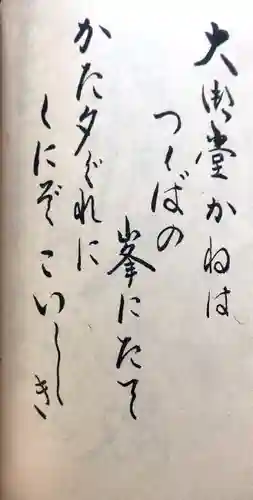 大御堂かねは
つくばの
峯にたて
かた夕ぐれに
くにぞこいしき